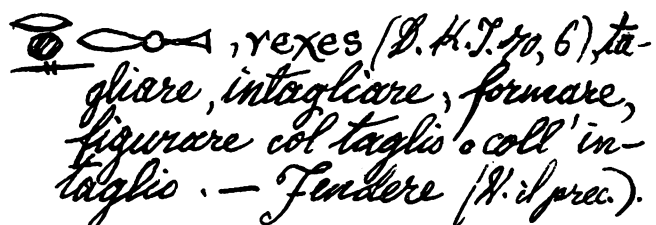 , rexes (D.H.I. 70, 6), ta-
gliare, intagliare, formare,
figurare col taglio o coll'in-
taglio. — Fendere (V. il prec.).